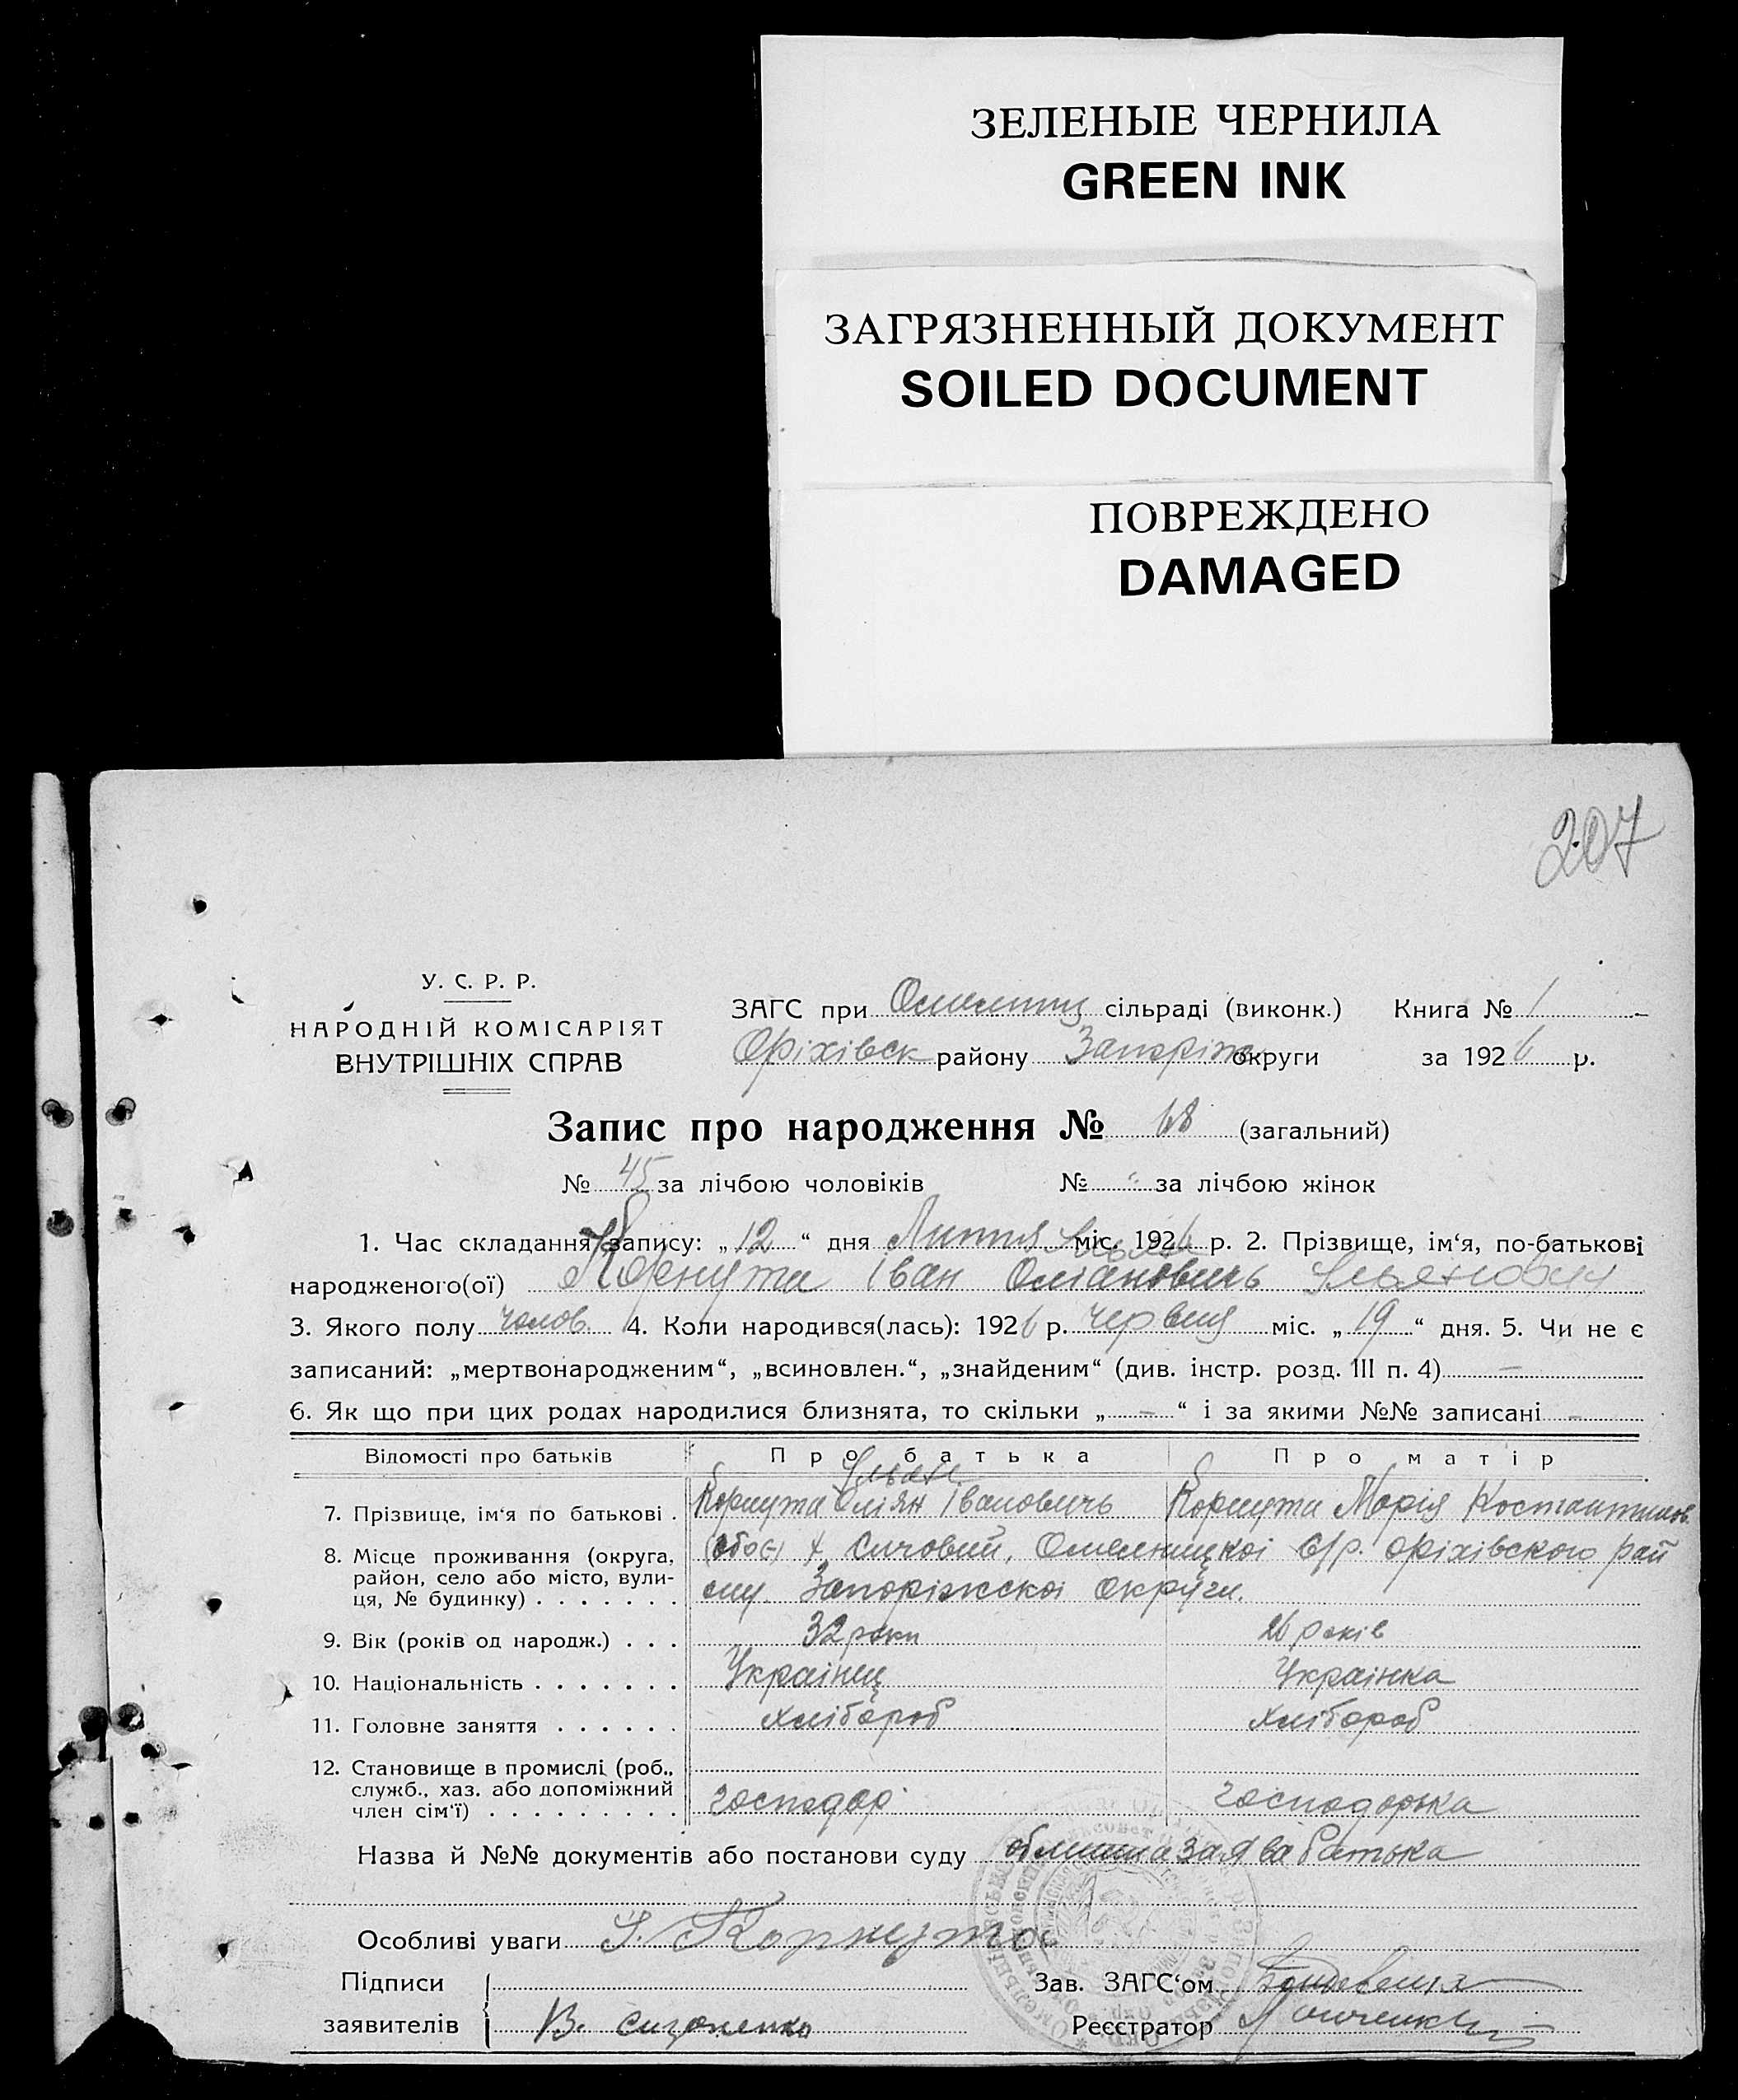 ЗЕЛЕНЫЕ ЧЕРНИЛА
GREEN INK
ЗАГРЯЗНЕННЫЙ ДОКУМЕНТ
SOILED DOCUMENT
ПОВРЕЖДЕНО
DAMAGED
207
У. С. Р. Р.
НАРОДНІЙ КОМІСАРІЯТ
ВНУТРІШНІХ СПРАВ
ЗАГС при сільраді (виконк.) Книга № 1
Оріхівськ району Запоріж округи за 1926 р.
Запис про народження № 68 (загальний)
№ 45 за лічбою чоловіків № за лічбою жінок
1. Час складання запису: „12“ дня Липня міс. 1926 р. 2. Прізвище, ім‘я, по-батькові
Ульян
народженого(ої) Корнута Іван Оліянович Ульянович
3. Якого полу чолов. 4. Коли народився(лась): 1926 р. червня міс. „19“ дня. 5. Чи не є
записаний: „мертвонародженим“, „всиновлен.“, „знайденим“ (див. інстр. розд. III п. 4) —
6. Як що при цих родах народилися близнята, то скільки „—“ і за якими №№ записані —
Відомості про батьків Про батька Про матір
Ульян
7. Прізвище, ім‘я по батькові . Корнута Оліян Івановичь Корнута Марія Костантинов.
8. Місце проживання (округа, район, село або місто, вулиця, № будинку) . . . . . . . (обоє) х. Сичовий, Омельницкоі с/р. Оріхівского рай
ону Запоріжскоі округи.
9. Вік (років од народж.) . . . 32 роки 26 років
10. Національність . . . . . . . Украінец Украінка
11. Головне заняття . . . . . . хлібороб хлібороб
12. Становище в промислі (роб., служб., хаз. або допоміжний член сім‘ї) . . . . . . . . . господар господорька
Назва й №№ документів або постанови суду заява батька
Особливі уваги У. Корнута
Підписи Зав. ЗАГС‘ом
заявителів В. Сизоненко Реєстратор